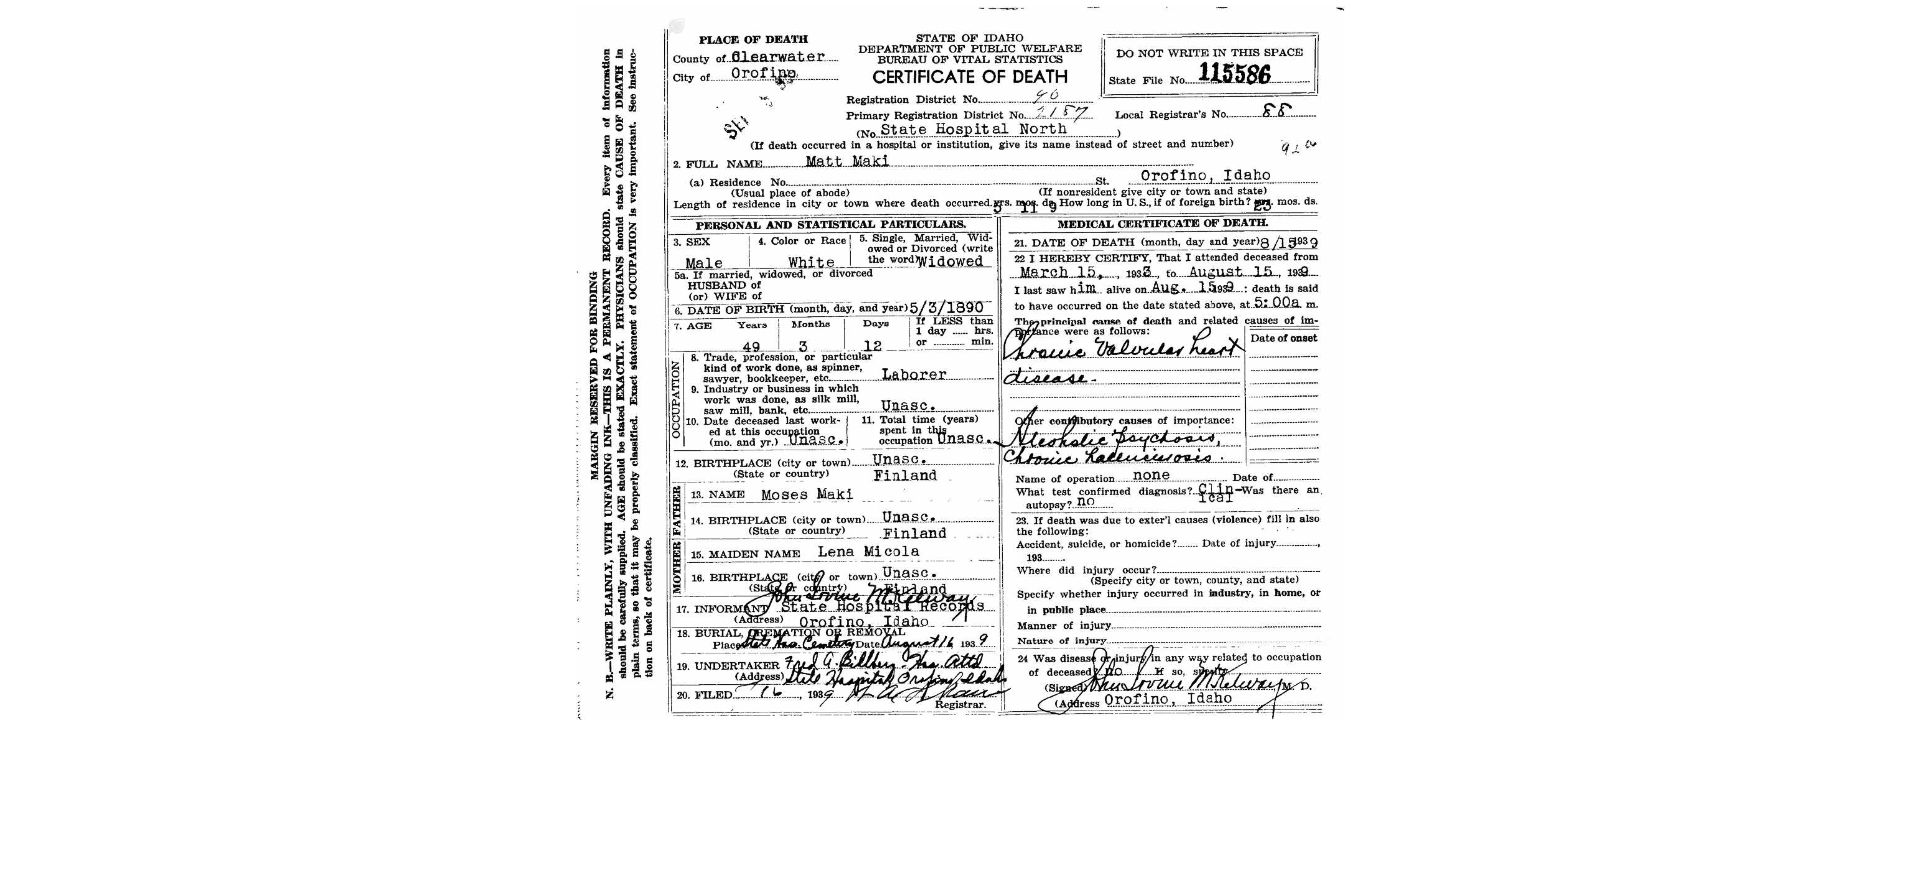 MARGIN RESERVED FOR BINDING
N. B.—WRITE PLAINLY, WITH UNFADING INK—THIS IS A PERMANENT RECORD. Every item of information
should be carefully supplied. AGE should be stated EXACTLY. PHYSICIANS should state CAUSE OF DEATH in
plain terms, so that it may be properly classified. Exact statement of OCCUPATION is very important. See instruc-
tion on back of certificate.
PLACE OF DEATH
County of Clearwater
City of Orofino
STATE OF IDAHO
DEPARTMENT OF PUBLIC WELFARE
BUREAU OF VITAL STATISTICS
CERTIFICATE OF DEATH
DO NOT WRITE IN THIS SPACE
State File No. 115586
Registration District No. 90
Primary Registration District No. 2187
Local Registrar's No. 88
(No. State Hospital North )
(If death occurred in a hospital or institution, give its name instead of street and number)
2. FULL NAME Matt Maki
(a) Residence No. St. Orofino, Idaho
(Usual place of abode) (If nonresident give city or town and state)
Length of residence in city or town where death occurred. 5 yrs. 11 mos. 9 ds. How long in U.S., if of foreign birth? 23 yrs. mos. ds.
PERSONAL AND STATISTICAL PARTICULARS.
3. SEX
Male
4. Color or Race
White
5. Single, Married, Wid-
owed or Divorced (write
the word) Widowed
5a. If married, widowed, or divorced
HUSBAND of
(or) WIFE of
6. DATE OF BIRTH (month, day, and year) 5/3/1890
7. AGE Years Months Days If LESS than
1 day hrs.
or min.
49 3 12
OCCUPATION
8. Trade, profession, or particular
kind of work done, as spinner,
sawyer, bookkeeper, etc. Laborer
9. Industry or business in which
work was done, as silk mill,
saw mill, bank, etc. Unasc.
10. Date deceased last work-
ed at this occupation
(mo. and yr.) Unasc.
11. Total time (years)
spent in this
occupation Unasc.
12. BIRTHPLACE (city or town) Unasc.
(State or country) Finland
FATHER
13. NAME Moses Maki
14. BIRTHPLACE (city or town) Unasc.
(State or country) Finland
MOTHER
15. MAIDEN NAME Lena Micola
16. BIRTHPLACE (city or town) Unasc.
(State or country) Finland
John Lovine McKelway
17. INFORMANT State Hospital Records
(Address) Orofino, Idaho
18. BURIAL, CREMATION OR REMOVAL
Place State Hos. Cemetery Date August 16 1939
19. UNDERTAKER Fred A. Billberg Hos. Attd
(Address) State Hospital, Orofino, Idaho
20. FILED 16, 1939
Registrar.
MEDICAL CERTIFICATE OF DEATH.
21. DATE OF DEATH (month, day and year) 8/15 1939
22 I HEREBY CERTIFY, That I attended deceased from
March 15, 1933, to August 15, 1939
I last saw him alive on Aug. 15 1939: death is said
to have occurred on the date stated above, at 5:00a m.
The principal cause of death and related causes of im-
portance were as follows:
Date of onset
Chronic Valvular heart
disease.
Other contributory causes of importance:
Alcoholic Psychosis,
Chronic hallucinosis.
Name of operation none Date of
What test confirmed diagnosis? Clinical Was there an
autopsy? no
23. If death was due to exter'l causes (violence) fill in also
the following:
Accident, suicide, or homicide? Date of injury,
193
Where did injury occur?
(Specify city or town, county, and state)
Specify whether injury occurred in industry, in home, or
in public place
Manner of injury
Nature of injury
24 Was disease or injury in any way related to occupation
of deceased? no If so, specify
(Signed) John Lovine McKelway M. D.
(Address Orofino, Idaho